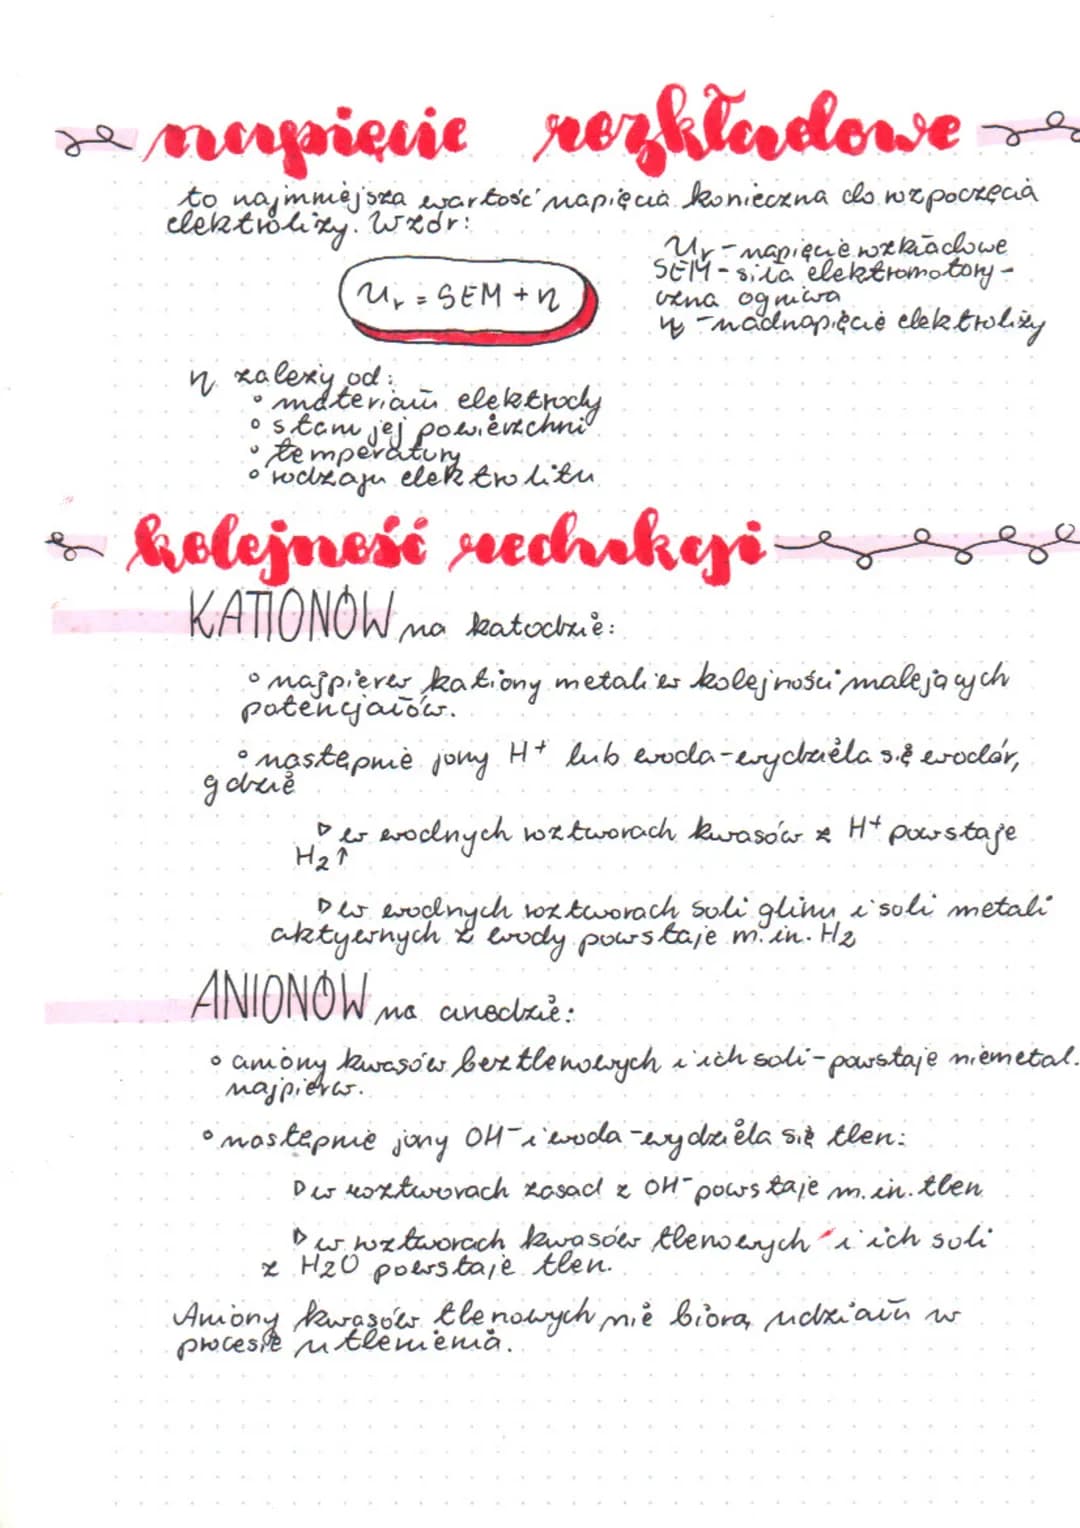 napięcie rozkładowe
to najmniejsza wartość napięcia konieczna do rozpoczęcia
elektrolizy. Wzór:
Ur - napięcie rozkładowe
SEM - siła elektromotory-
czna ogniwa
η - nadnapięcie elektrolizy
Ur = SEM + η
η zależy od:
• materiału elektrody
• stanu jej powierzchni
• temperatury
• rodzaju elektrolitu
kolejność redukcji
KATIONÓW na katodzie:
• najpierw kationy metali w kolejności malejących
potencjałów.
• następnie jony H+ lub woda - wydziela się wodór,
gdzie
▷ w wodnych roztworach kwasów z H+ powstaje
H2↑
▷ w wodnych roztworach soli glinu i soli metali
aktywnych z wody powstaje m.in. H2
ANIONÓW na anodzie:
• aniony kwasów beztlenowych i ich soli - powstaje niemetal.
najpierw.
• następnie jony OH- i woda - wydziela się tlen:
▷ w roztworach zasad z OH- powstaje m.in. tlen
▷ w roztworach kwasów tlenowych i ich soli
z H2O powstaje tlen.
Aniony kwasów tlenowych nie biorą udziału w
procesie utlenienia.